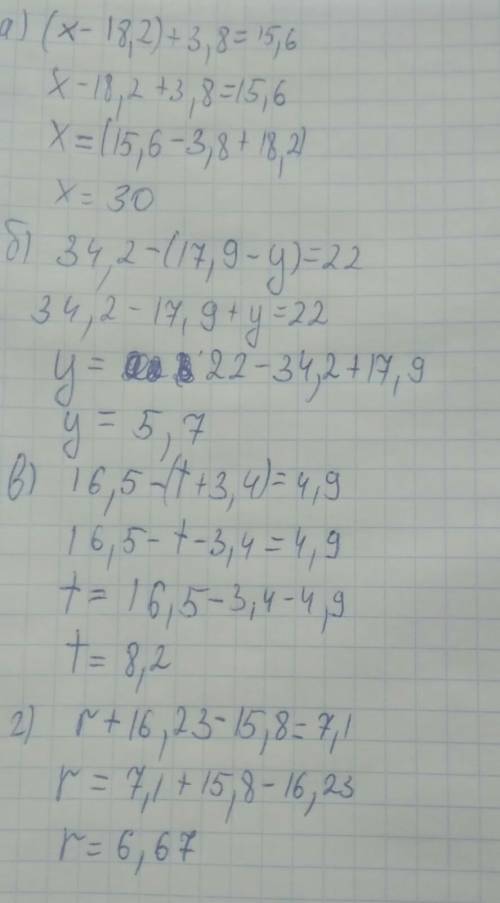 а) (x - 18,2) + 3,8 = 15,6
x - 18,2 + 3,8 = 15,6
x = (15,6 - 3,8 + 18,2)
x = 30
б) 34,2 - (17,9 - y) = 22
34,2 - 17,9 + y = 22
y = 22 - 34,2 + 17,9
y = 5,7
в) 16,5 - (t + 3,4) = 4,9
16,5 - t - 3,4 = 4,9
t = 16,5 - 3,4 - 4,9
t = 8,2
г) r + 16,23 - 15,8 = 7,1
r = 7,1 + 15,8 - 16,23
r = 6,67